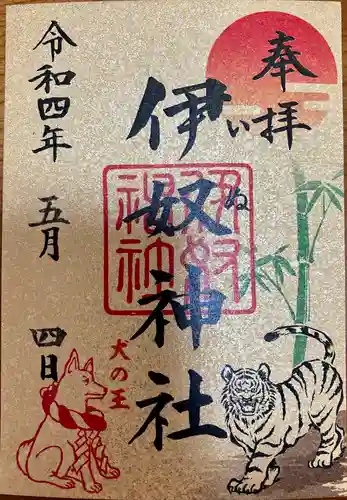 奉拝
伊奴神社
いぬ
伊奴神社
令和四年 五月 四日
犬の王